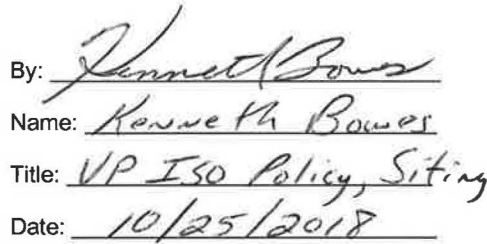 By: Kenneth Bowes
Name: Kenneth Bowes
Title: VP ISO Policy, Siting
Date: 10/25/2018